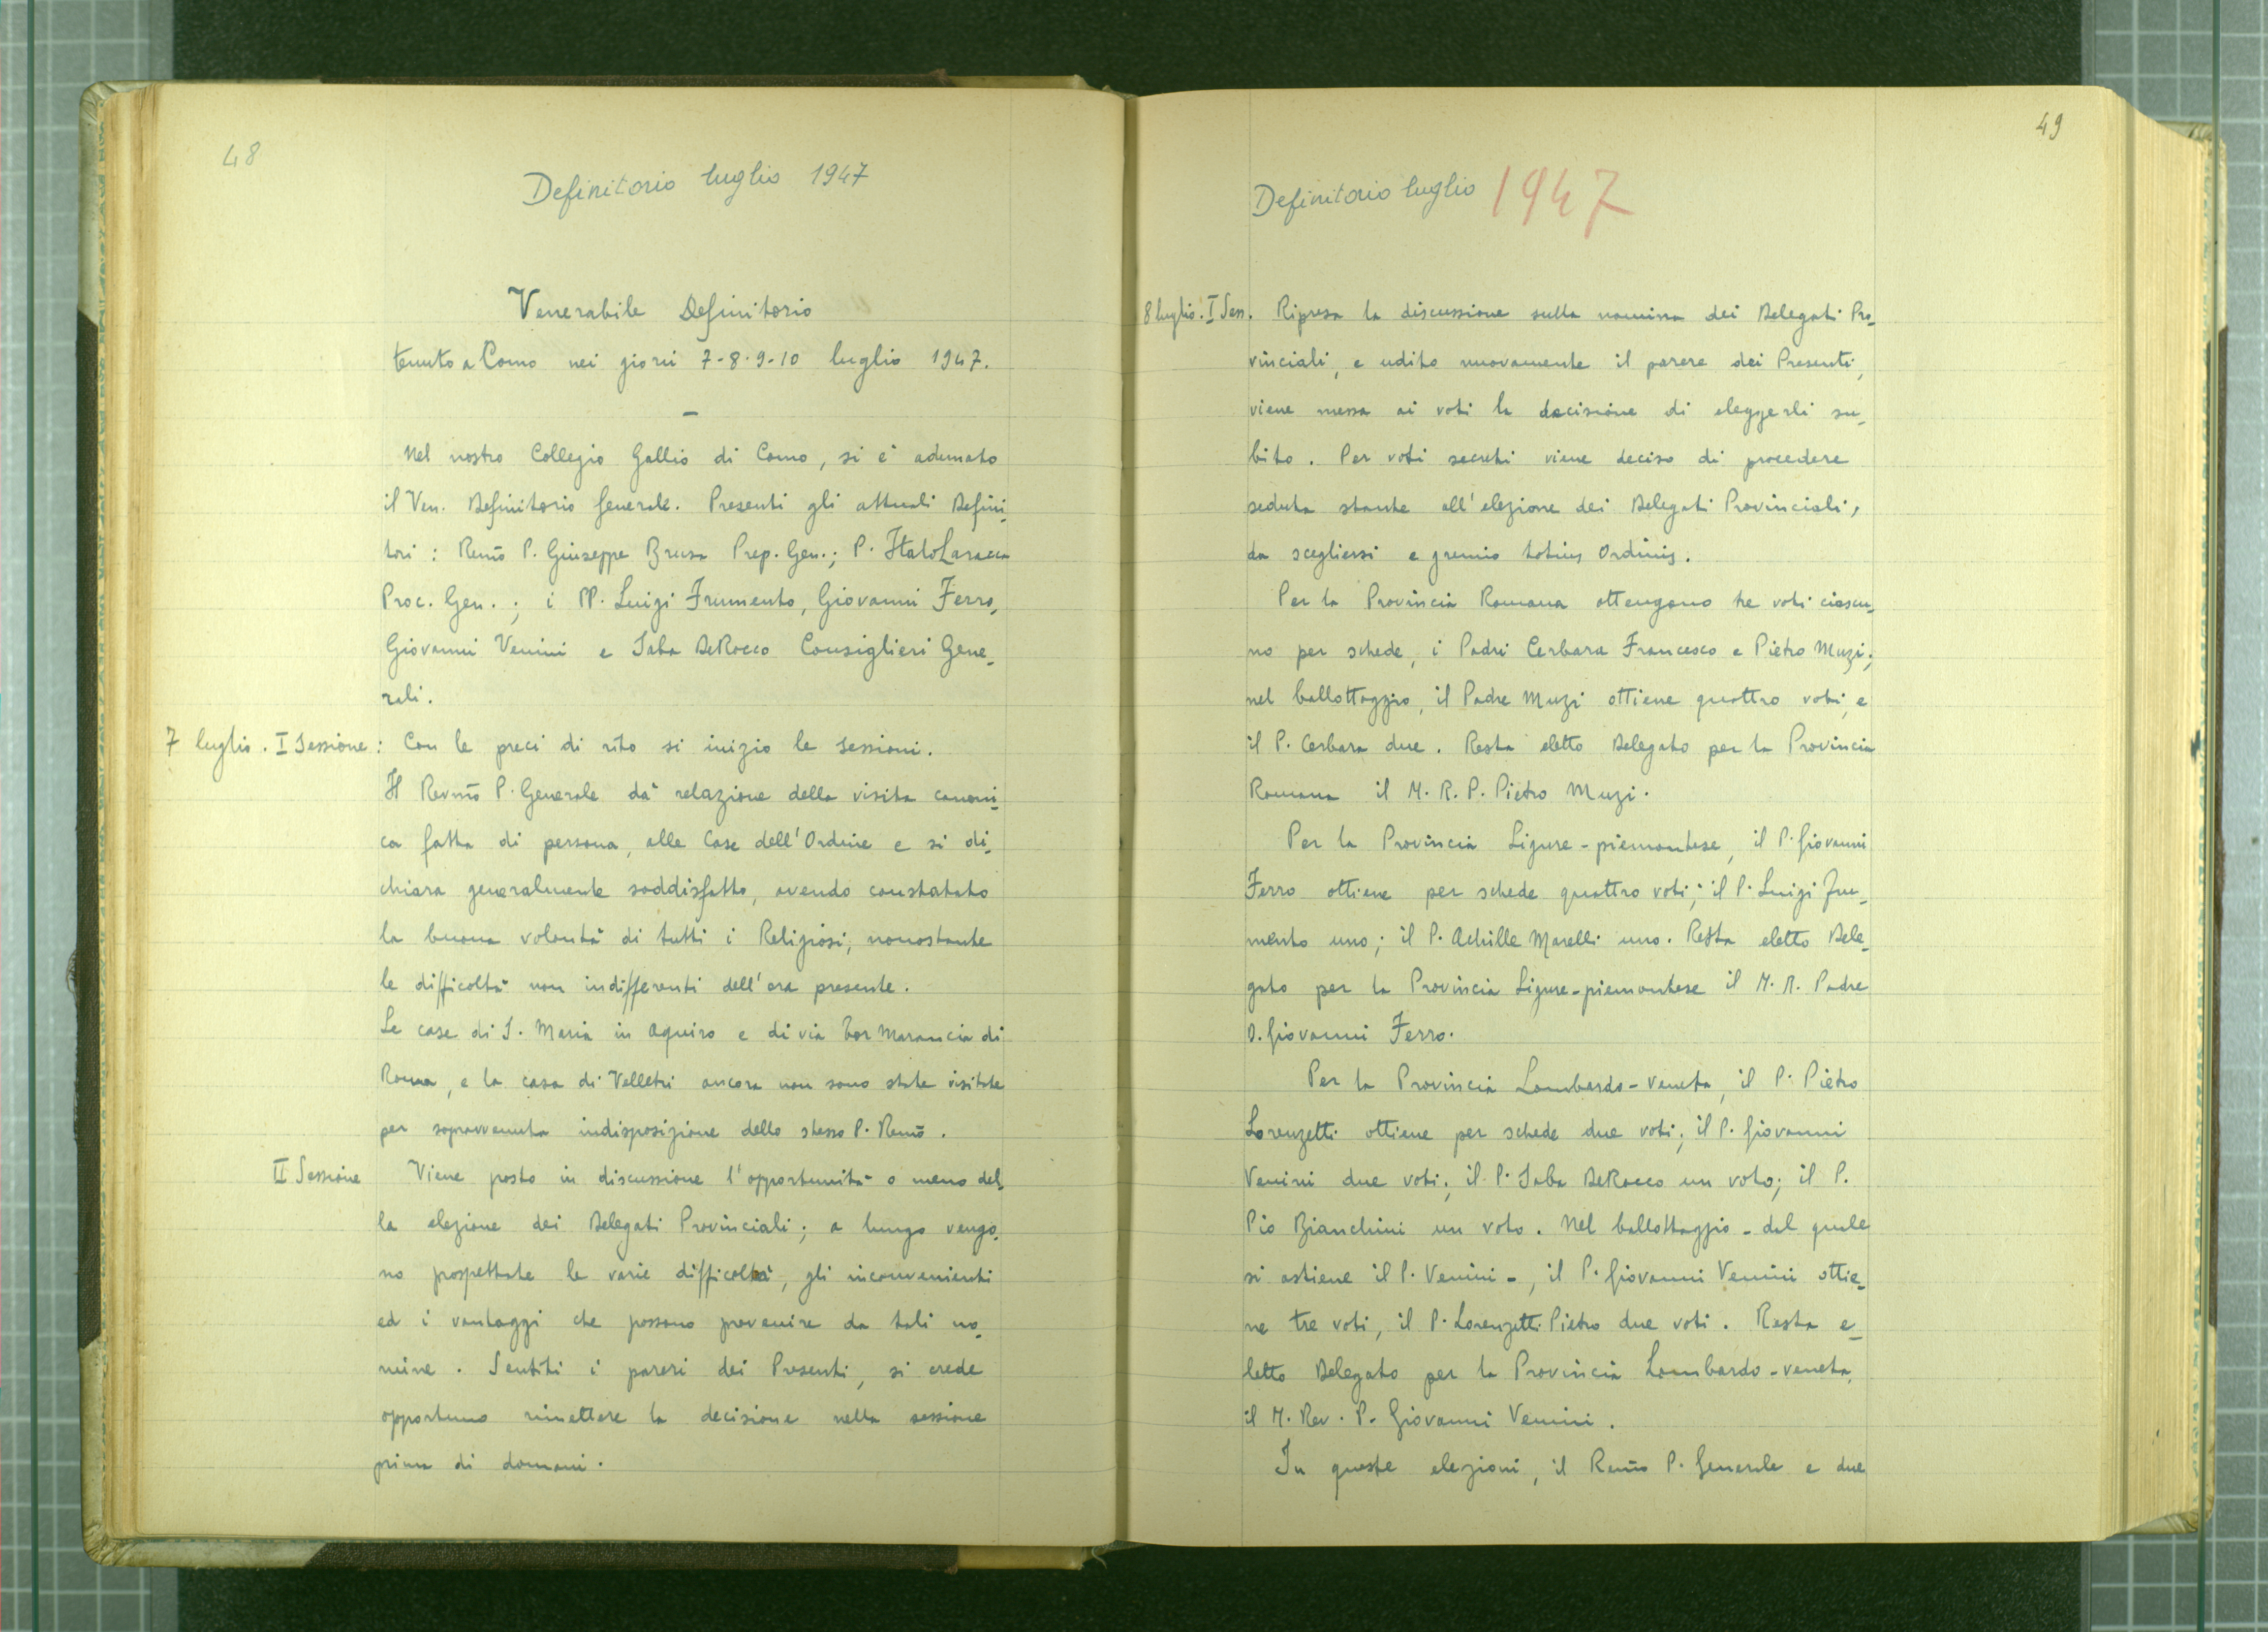 48
Definitorio luglio 1947
Venerabile Definitorio
tenuto a Como nei giorni 7-8-9-10 luglio 1947.
—
Nel nostro Collegio Gallio di Como, si è adunato
il Ven. Definitorio Generale. Presenti gli attuali Defini-
tori : Remo P. Giuseppe Brusa Prep. Gen.; P. Italo Laracca
Proc. Gen. ; i PP. Luigi Frumento, Giovanni Ferro,
Giovanni Venini e Saba DeRocco Consiglieri Gene-
rali.
7 luglio. I Sessione : Con le preci di rito si inizio le sessioni.
Il Revmo P. Generale dà relazione della visita canoni-
ca fatta di persona, alle Case dell'Ordine e si di-
chiara generalmente soddisfatto, avendo constatato
la buona volontà di tutti i Religiosi, nonostante
le difficoltà non indifferenti dell'ora presente.
Le case di S. Maria in Aquiro e di via Tor Marancia di
Roma, e la casa di Velletri ancora non sono state visitate
per sopravvenuta indisposizione dello stesso P. Remo.
II Sessione Viene posto in discussione l'opportunità o meno del-
la elezione dei Delegati Provinciali; a lungo vengo-
no prospettate le varie difficoltà, gli inconvenienti
ed i vantaggi che possono provenire da tali no-
mine. Sentiti i pareri dei Presenti, si crede
opportuno rimettere la decisione nella sessione
prima di domani.
49
Definitorio luglio 1947
8 luglio. I Sess. Ripresa la discussione sulla nomina dei Delegati Pro-
vinciali, e udito nuovamente il parere dei Presenti,
viene messa ai voti la decisione di eleggerli su-
bito. Per voti secreti viene deciso di procedere
seduta stante all'elezione dei Delegati Provinciali,
da scegliersi e gremio totius Ordinis.
Per la Provincia Romana ottengono tre voti ciascu-
no per schede, i Padri Cerbara Francesco e Pietro Muzi;
nel ballottaggio, il Padre Muzi ottiene quattro voti, e
il P. Cerbara due. Resta eletto Delegato per la Provincia
Romana il M. R. P. Pietro Muzi.
Per la Provincia Ligure-piemontese, il P. Giovanni
Ferro ottiene per schede quattro voti; il P. Luigi Fru-
mento uno; il P. Achille Marelli uno. Resta eletto Dele-
gato per la Provincia Ligure-piemontese il M. R. Padre
D. Giovanni Ferro.
Per la Provincia Lombardo-veneta, il P. Pietro
Lorenzetti ottiene per schede due voti; il P. Giovanni
Venini due voti; il P. Saba DeRocco un voto; il P.
Pio Bianchini un voto. Nel ballottaggio - dal quale
si astiene il P. Venini -, il P. Giovanni Venini ottie-
ne tre voti, il P. Lorenzetti Pietro due voti. Resta e-
letto Delegato per la Provincia Lombardo-veneta,
il M. Rev. P. Giovanni Venini.
In queste elezioni, il Remo P. Generale e due